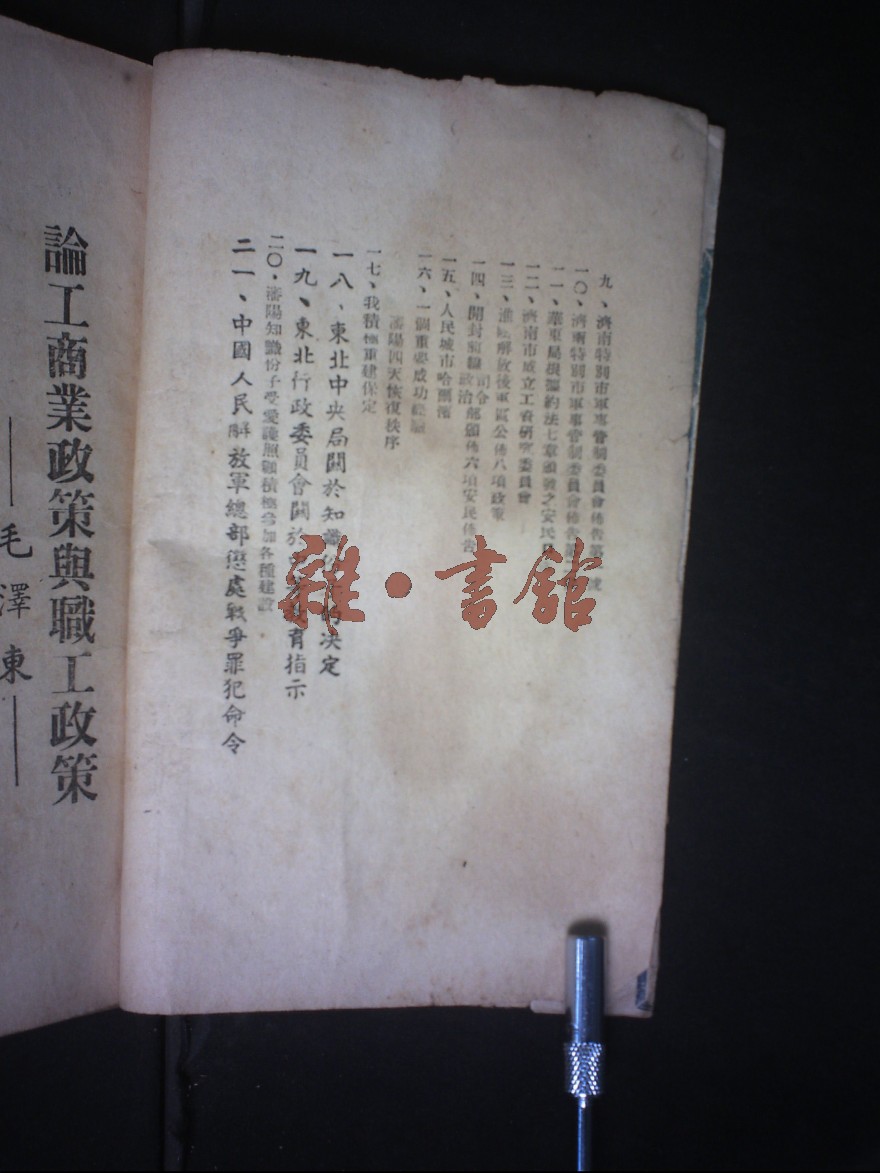 九、濟南特別市軍事管制委員會佈告第
一〇、濟南特別市軍事管制委員會佈告第
一一、華東局根據約法七章頒發之安民
一二、濟南市成立工商研究委員會
一三、淮陰解放後軍區公佈八項政策
一四、開封前線司令政治部頒佈六項安民佈告
一五、人民城市哈爾濱
一六、一個重要成功經驗
瀋陽四天恢復秩序
一七、我積極重建保定
一八、東北中央局關於知識 决定
一九、東北行政委員會關於 育指示
二〇、瀋陽知識份子受愛護照顧積極参加各種建設
二一、中國人民解放軍總部懲處戰爭罪犯命令
雜·書館
論工商業政策與職工政策
毛澤東